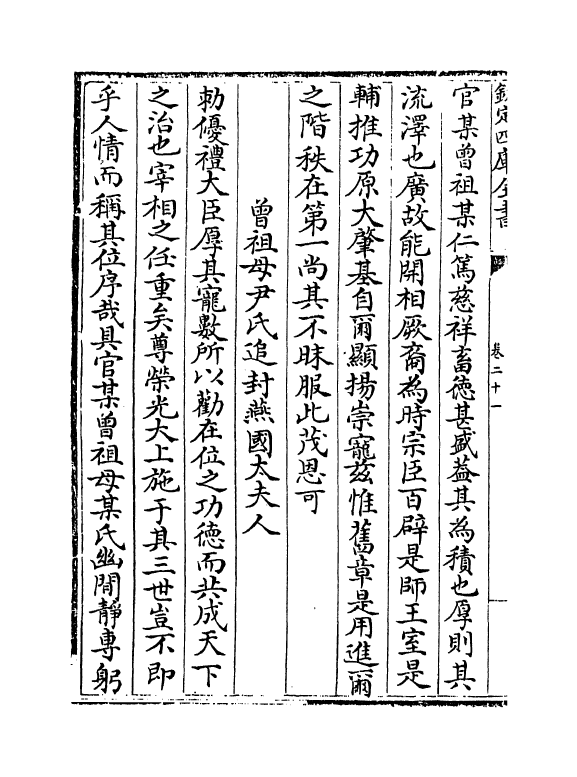 欽定四庫全書
卷二十一
官某曽祖某仁篤慈祥畜徳甚盛葢其為積也厚則其
流澤也廣故能開相厥裔為時宗臣百辟是師王室是
輔推功原大肇基自爾顯揚崇寵兹惟舊章是用進爾
之階秩在第一尚其不昧服此茂恩可
曽祖母尹氏追封燕國太夫人
勅優禮大臣厚其寵數所以勸在位之功徳而共成天下
之治也宰相之任重矣尊榮光大上施于其三世豈不即
乎人情而稱其位序哉具官某曽祖母某氏幽閒靜專躬